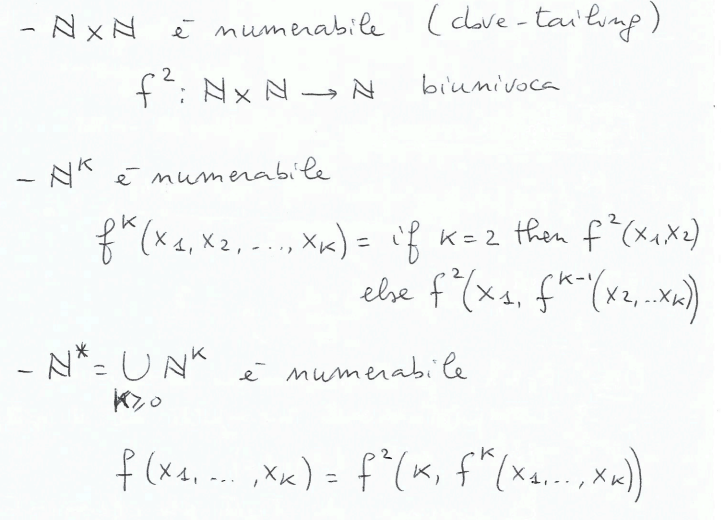 - ℕ × ℕ è numerabile (dove-tailing)
f²: ℕ × ℕ → ℕ biunivoca
- ℕᴷ è numerabile
fᴷ(x₁, x₂, ..., xₖ) = if K = 2 then f²(x₁,x₂)
else f²(x₁, fᴷ⁻¹(x₂,..xₖ))
- ℕ* = ∪ ℕᴷ è numerabile
K⩾0
f(x₁, ... ,xₖ) = f²(K, fᴷ(x₁,..., xₖ))